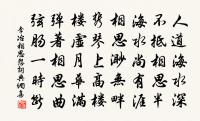 人道海水深
不抵相思半
海水尚有涯
相思渺無畔
攜琴上高樓
樓虛月華滿
彈著相思曲
弦腸一時斷
李冶相思怨詞典網集